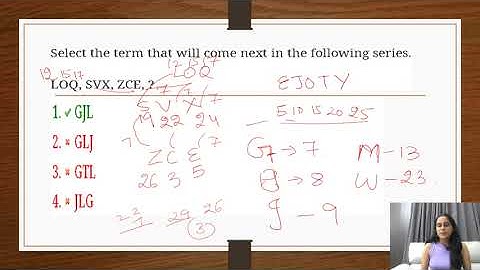 Select the term that will come next in the following series.
LOQ, SVX, ZCE, ?
1. ✓ GJL
2. × GLJ
3. × GTL
4. × JLG
12 15 17
12 15 17
LOQ
7 7 7
S V X
19 22 24
7 7
Z C E
26 3 5
29 26
3
EJOTY
5 10 15 20 25
G → 7
→ 8
J - 9
M - 13
W - 23